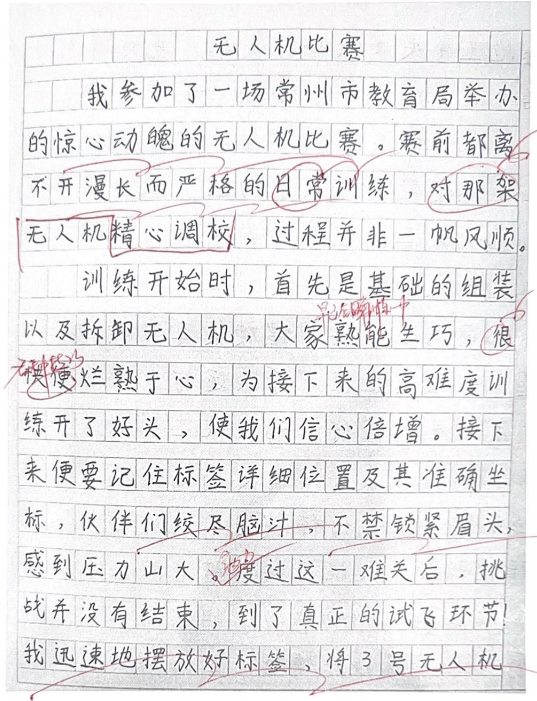 无人机比赛
我参加了一场常州市教育局举办
的惊心动魄的无人机比赛。赛前都离
不开漫长而严格的日常训练，对那架
无人机精心调校，过程并非一帆风顺。
训练开始时，首先是基础的组装
以及拆卸无人机，大家熟能生巧，很
快便烂熟于心，为接下来的高难度训
练开了好头，使我们信心倍增。接下
来便要记住标签详细位置及其准确坐
标，伙伴们绞尽脑汁，不禁锁紧眉头，
感到压力山大。度过这一难关后，挑
战并没有结束，到了真正的试飞环节！
我迅速地摆放好标签，将3号无人机